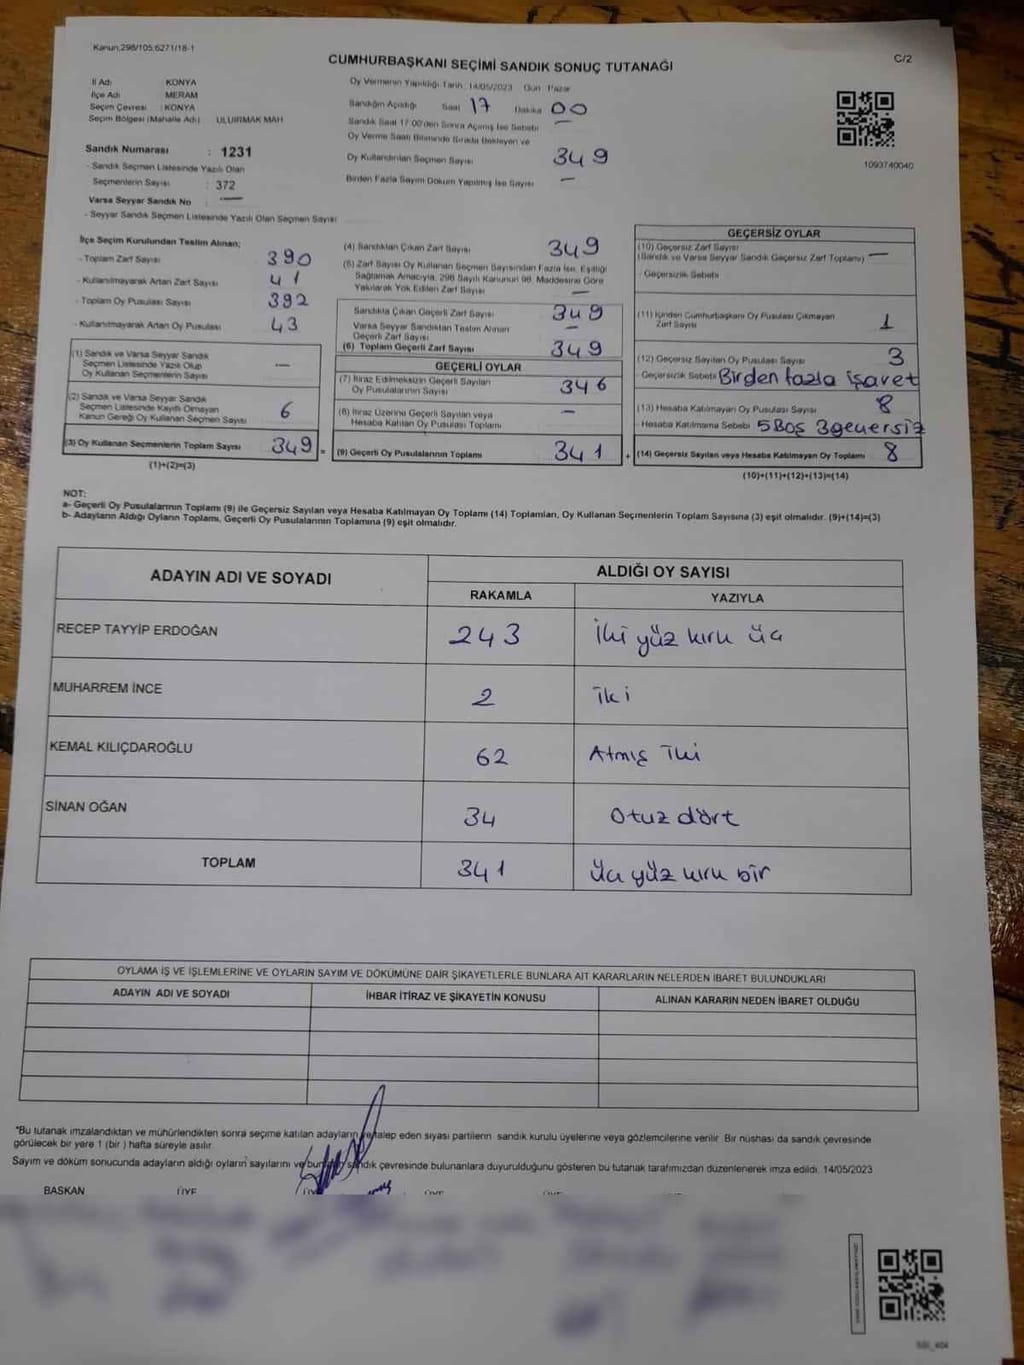 Kanun,298/105,6271/18-1
C/2
CUMHURBAŞKANI SEÇİMİ SANDIK SONUÇ TUTANAĞI
İl Adı KONYA
İlçe Adı MERAM
Seçim Çevresi : KONYA
Seçim Bölgesi (Mahalle Adı) ULUIRMAK MAH
Sandık Numarası : 1231
- Sandık Seçmen Listesinde Yazılı Olan
Seçmenlerin Sayısı : 372
Varsa Seyyar Sandık No —
- Seyyar Sandık Seçmen Listesinde Yazılı Olan Seçmen Sayısı
Oy Vermenin Yapıldığı Tarih : 14/05/2023 Gün Pazar
Sandığın Açıldığı Saat 17 Dakika 00
Sandık Saat 17:00'den Sonra Açılmış İse Sebebi —
Oy Verme Saati Bitiminde Sırada Bekleyen ve
Oy Kullandırılan Seçmen Sayısı 349
Birden Fazla Sayım Döküm Yapılmış İse Sayısı —
1093740040
İlçe Seçim Kurulundan Teslim Alınan;
- Toplam Zarf Sayısı 390
- Kullanılmayarak Artan Zarf Sayısı 41
- Toplam Oy Pusulası Sayısı 392
- Kullanılmayarak Artan Oy Pusulası 43
(1) Sandık ve Varsa Seyyar Sandık
Seçmen Listesinde Yazılı Olup
Oy Kullanan Seçmenlerin Sayısı —
(2) Sandık ve Varsa Seyyar Sandık
Seçmen Listesinde Kayıtlı Olmayan
Kanun Gereği Oy Kullanan Seçmen Sayısı 6
(3) Oy Kullanan Seçmenlerin Toplam Sayısı 349 =
(1)+(2)=(3)
(4) Sandıktan Çıkan Zarf Sayısı 349
(5) Zarf Sayısı Oy Kullanan Seçmen Sayısından Fazla İse, Eşitliği
Sağlamak Amacıyla, 298 Sayılı Kanunun 98. Maddesine Göre
Yakılarak Yok Edilen Zarf Sayısı —
Sandıkta Çıkan Geçerli Zarf Sayısı 349
Varsa Seyyar Sandıktan Teslim Alınan
Geçerli Zarf Sayısı —
(6) Toplam Geçerli Zarf Sayısı 349
GEÇERLİ OYLAR
(7) İtiraz Edilmeksizin Geçerli Sayılan
Oy Pusulalarının Sayısı 346
(8) İtiraz Üzerine Geçerli Sayılan veya
Hesaba Katılan Oy Pusulası Toplamı —
(9) Geçerli Oy Pusulalarının Toplamı 341 +
GEÇERSİZ OYLAR
(10) Geçersiz Zarf Sayısı
(Sandık ve Varsa Seyyar Sandık Geçersiz Zarf Toplamı) —
- Geçersizlik Sebebi
(11) İçinden Cumhurbaşkanı Oy Pusulası Çıkmayan
Zarf Sayısı 1
(12) Geçersiz Sayılan Oy Pusulası Sayısı 3
- Geçersizlik Sebebi Birden fazla işaret
(13) Hesaba Katılmayan Oy Pusulası Sayısı 8
- Hesaba Katılmama Sebebi 5 Boş 3 geversiz
(14) Geçersiz Sayılan veya Hesaba Katılmayan Oy Toplamı 8
(10)+(11)+(12)+(13)=(14)
NOT:
a- Geçerli Oy Pusulalarının Toplamı (9) ile Geçersiz Sayılan veya Hesaba Katılmayan Oy Toplamı (14) Toplamları, Oy Kullanan Seçmenlerin Toplam Sayısına (3) eşit olmalıdır. (9)+(14)=(3)
b- Adayların Aldığı Oyların Toplamı, Geçerli Oy Pusulalarının Toplamına (9) eşit olmalıdır.
ADAYIN ADI VE SOYADI
ALDIĞI OY SAYISI
RAKAMLA YAZIYLA
RECEP TAYYİP ERDOĞAN 243 İki yüz kırk üç
MUHARREM İNCE 2 İki
KEMAL KILIÇDAROĞLU 62 Atmış İki
SİNAN OĞAN 34 Otuz dört
TOPLAM 341 Üç yüz kırk bir
OYLAMA İŞ VE İŞLEMLERİNE VE OYLARIN SAYIM VE DÖKÜMÜNE DAİR ŞİKAYETLERLE BUNLARA AİT KARARLARIN NELERDEN İBARET BULUNDUKLARI
ADAYIN ADI VE SOYADI İHBAR İTİRAZ VE ŞİKAYETİN KONUSU ALINAN KARARIN NEDEN İBARET OLDUĞU
*Bu tutanak imzalandıktan ve mühürlendikten sonra seçime katılan adayların talep eden siyasi partilerin sandık kurulu üyelerine veya gözlemcilerine verilir. Bir nüshası da sandık çevresinde
görülecek bir yere 1 (bir ) hafta süreyle asılır.
Sayım ve döküm sonucunda adayların aldığı oyların sayılarını ve sandık çevresinde bulunanlara duyurulduğunu gösteren bu tutanak tarafımızdan düzenlenerek imza edildi. 14/05/2023
BAŞKAN ÜYE